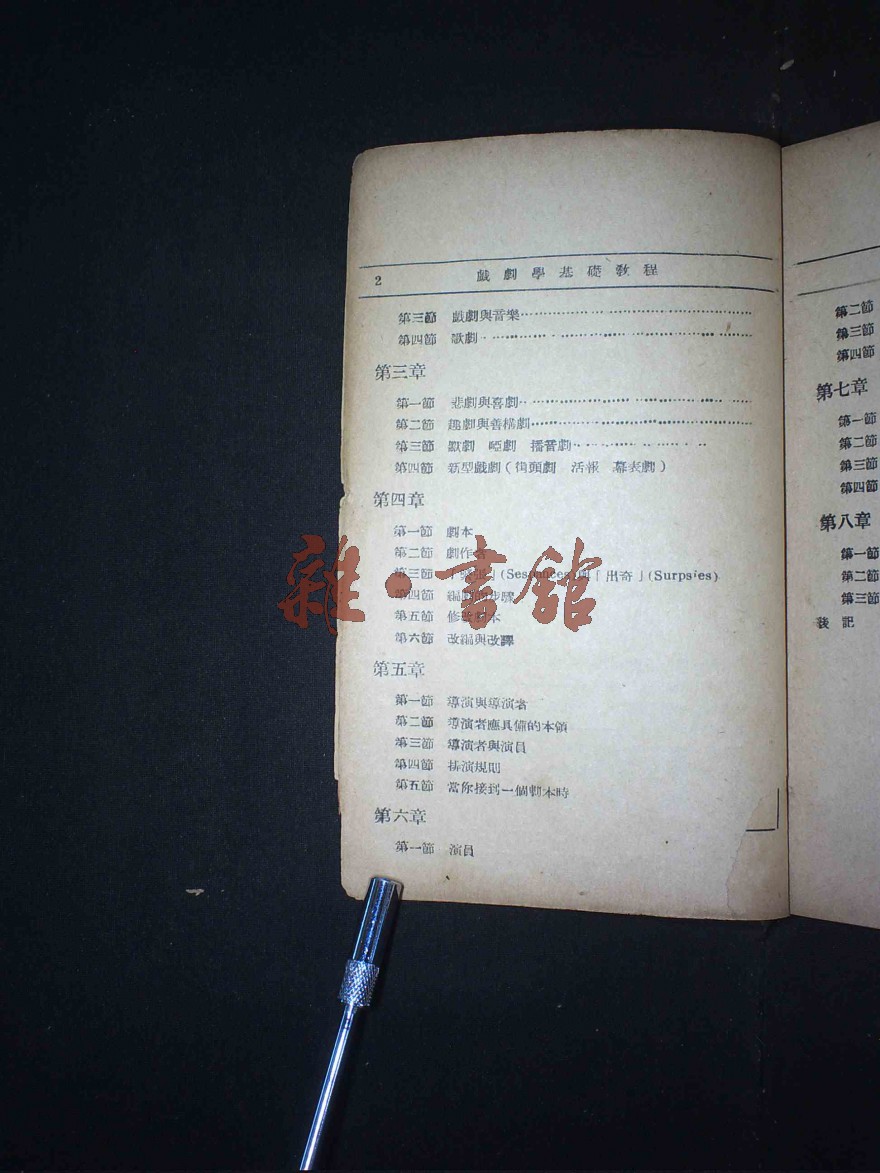 2
戲劇學基礎教程
第三節 戲劇與音樂
第四節 歌劇
第三章
第一節 悲劇與喜劇
第二節 趣劇與善構劇
第三節 默劇 啞劇 播音劇
第四節 新型戲劇(街頭劇 活報 幕表劇)
第四章
第一節 劇本
第二節 劇作者
第三節 「出奇」(Surpsies)
第四節 編劇的步驟
第五節 修改劇本
第六節 改編與改譯
第五章
第一節 導演與導演者
第二節 導演者應具備的本領
第三節 導演者與演員
第四節 排演規則
第五節 當你接到一個劇本時
第六章
第一節 演員
第二節
第三節
第四節
第七章
第一節
第二節
第三節
第四節
第八章
第一節
第二節
第三節
後記
雜·書館